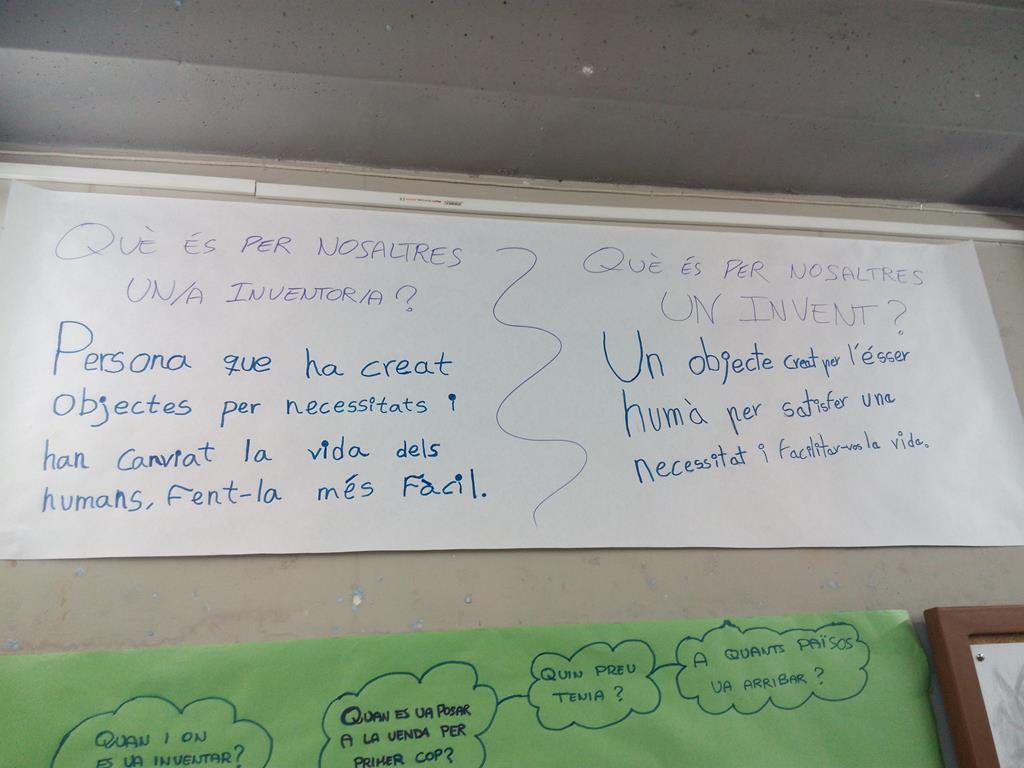 QUÈ ÉS PER NOSALTRES
UN/A INVENTOR/A?
Persona que ha creat
objectes per necessitats i
han canviat la vida dels
humans, fent-la més fàcil.
QUÈ ÉS PER NOSALTRES
UN INVENT?
Un objecte creat per l'ésser
humà per satisfer una
necessitat i facilitar-vos la vida.
QUAN I ON
ES VA INVENTAR?
QUAN ES VA POSAR
A LA VENDA PER
PRIMER COP?
QUIN PREU
TENIA?
A QUANTS PAÏSOS
VA ARRIBAR?